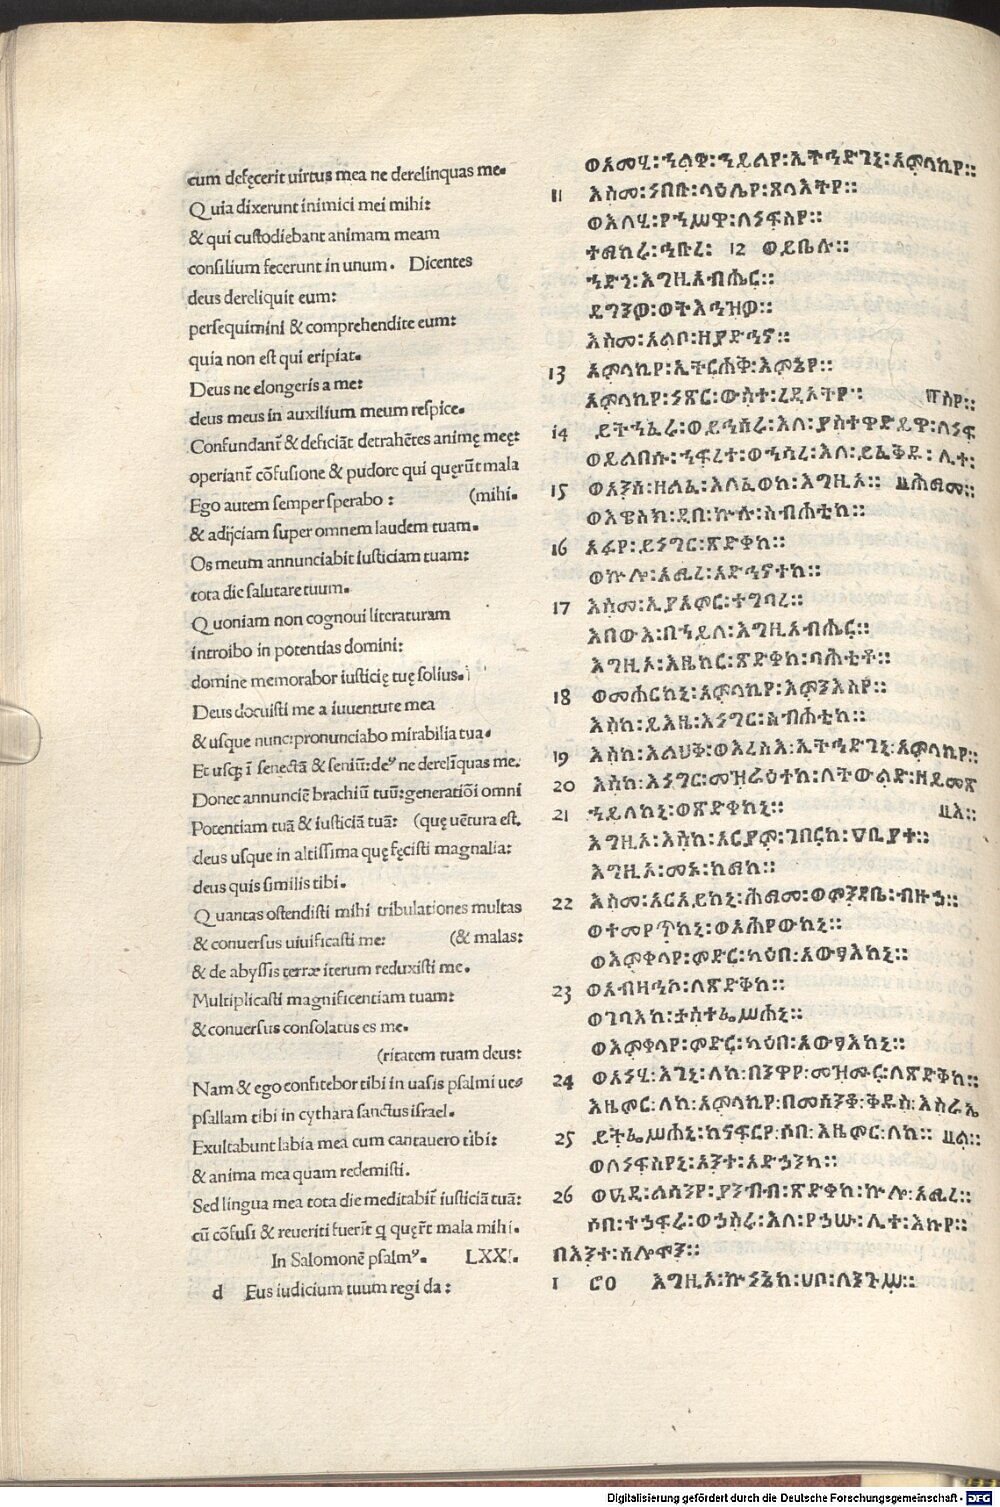 cum defęcerit uirtus mea ne derelinquas me.
Quia dixerunt inimici mei mihi:
& qui custodiebant animam meam
consilium fecerunt in unum. Dicentes
deus dereliquit eum:
persequimini & comprehendite eum:
quia non est qui eripiat.
Deus ne elongeris a me:
deus meus in auxilium meum respice.
Confundant̃ & deficiãt detrahẽtes animę meę:
operiant̃ cõfusione & pudore qui quęrũt mala
Ego autem semper sperabo : (mihi.
& adijciam super omnem laudem tuam.
Os meum annunciabit iusticiam tuam:
tota die salutare tuum.
Quoniam non cognoui literaturam
introibo in potentias domini:
domine memorabor iusticię tuę solius.
Deus docuisti me a iuuentute mea
& usque nunc:pronunciabo mirabilia tua.
Et usqꝫ ĩ senectã & seniũ:deꝰ ne derelĩquas me.
Donec annunciẽ brachiũ tuũ:generatiõi omni
Potentiam tuã & iusticiã tuã: (quę uẽtura est.
deus usque in altissima quę fęcisti magnalia:
deus quis similis tibi.
Quantas ostendisti mihi tribulationes multas
& conuersus uiuificasti me: (& malas:
& de abyssis terræ iterum reduxisti me.
Multiplicasti magnificentiam tuam:
& conuersus consolatus es me.
(ritatem tuam deus:
Nam & ego confitebor tibi in uasis psalmi ue
psallam tibi in cythara sanctus israel.
Exultabunt labia mea cum cantauero tibi:
& anima mea quam redemisti.
Sed lingua mea tota die meditabit̃ iusticiã tuã:
cũ cõfusi & reueriti fuerĩt q̃ quęrẽt mala mihi.
In Salomonẽ psalmꝰ. LXXI.
d Eus iudicium tuum regi da:
ወአመሂ፡ኀልቀ፡ኀይልየ፡ኢትኅድገኒ፡አምላኪየ።
11 እስመ፡ነበቡ፡ላዕሌየ፡ጸላእትየ።
ወእለሂ፡የኀሥዋ፡ለነፍስየ።
ተማከሩ፡ኅቡረ፡ 12 ወይቤሉ።
ኀደጎ፡እግዚአብሔር።
ዴግንዎ፡ወትእኅዝዎ።
እስመ፡አልቦ፡ዘያድኅኖ።
13 አምላኪየ፡ኢትርሐቅ፡እምኔየ።
አምላኪየ፡ነጽር፡ውስተ፡ረዲኦትየ። ፐስየ።
14 ይትኀፈሩ፡ወይኅሰሩ፡እለ፡ያስተዋድይዋ፡ለነፍ
ወይልበሱ፡ኀፍረተ፡ወኀሳረ፡እለ፡ይፈቅዱ፡ሊተ፡
15 ወአንሰ፡ዘልፈ፡እሴፈወከ፡እግዚኦ። ፐሕማመ።
ወእዌስክ፡ዲበ፡ኵሉ፡ስብሐቲከ።
16 አፉየ፡ይነግር፡ጽድቀከ።
ወኵሎ፡አሚረ፡አድኅኖተከ።
17 እስመ፡ኢያአምር፡ተግባረ።
እበውእ፡በኀይለ፡እግዚአብሔር።
እግዚኦ፡እዜከር፡ጽድቀከ፡ባሕቲቶ።
18 ወመሐርከኒ፡አምላኪየ፡እምንእስየ።
እስከ፡ይእዜ፡እነግር፡ስብሐቲከ።
19 እስከ፡እልህቅ፡ወእረስእ፡ኢትኅድገኒ፡አምላኪየ።
20 እስከ፡እነግር፡መዝራዕተከ፡ለትውልድ፡ዘይመጽ
21 ኀይለከኒ፡ወጽድቀከኒ። ፐእ።
እግዚኦ፡እስከ፡አርያም፡ገበርከ፡ዐቢያተ።
እግዚኦ፡መኑ፡ከማከ።
22 እስመ፡አርአይከኒ፡ሕማመ፡ወምንዳቤ፡ብዙኃ።
ወተመየጥከኒ፡ወአሕየውከኒ።
ወእምቀላየ፡ምድር፡ካዕበ፡አውፃእከኒ።
23 ወአብዛኅኮ፡ለጽድቅከ።
ወገባእከ፡ታስተፌሥሐኒ።
ወእምቀላየ፡ምድር፡ካዕበ፡አውፃእከኒ።
24 ወአነሂ፡እገኒ፡ለከ፡በንዋየ፡መዝሙር፡ለጽድቅከ።
እዜምር፡ለከ፡አምላኪየ፡በመሰንቆ፡ቅዱስ፡እስራኤ
25 ይትፌሥሐኒ፡ከናፍርየ፡ሶበ፡እዜምር፡ለከ፡ ፐል።
ወለነፍስየኒ፡አንተ፡አድኃንከ።
26 ወዓዲ፡ልሳንየ፡ያንብብ፡ጽድቀከ፡ኵሎ፡አሚረ።
ሶበ፡ተኃፍሩ፡ወኃስሩ፡እለ፡የኃሡ፡ሊተ፡እኩየ።
በእንተ፡ሰሎሞን።
1 ሮዐ እግዚኦ፡ኵነኔከ፡ሀቦ፡ለንጉሥ።
Digitalisierung gefördert durch die Deutsche Forschungsgemeinschaft - DFG